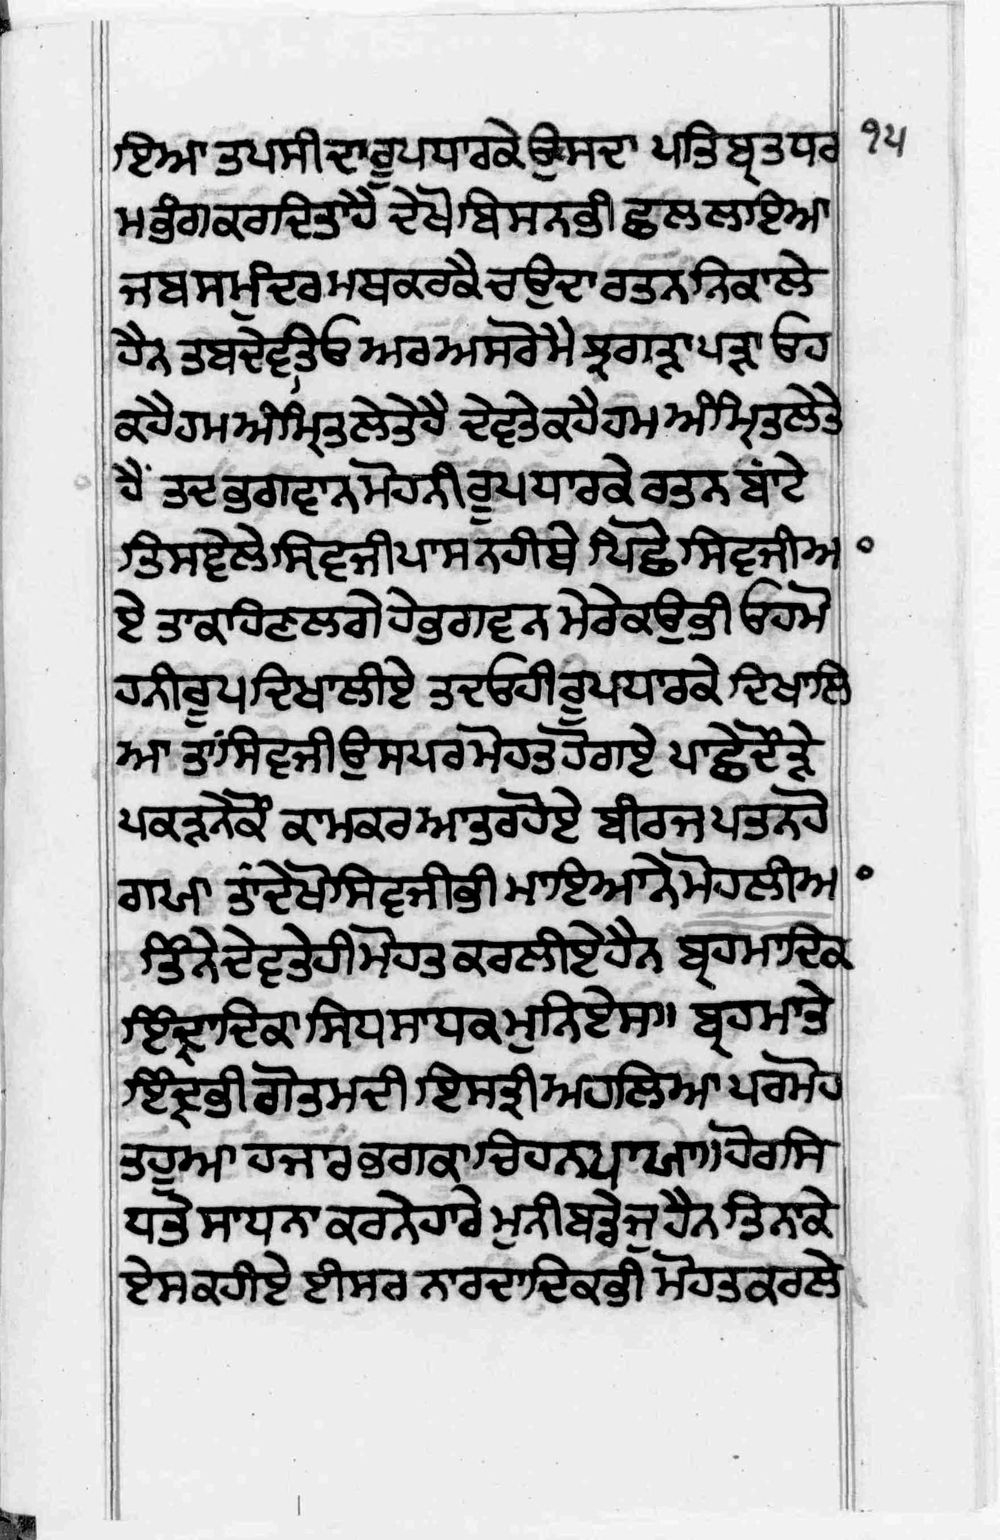 ਇਆ ਤਪਸੀ ਦਾ ਰੂਪ ਧਾਰਕੇ ਉਸਦਾ ਪਤਿਬ੍ਰਤ ਧਰ ੧੫
ਮ ਭੰਗ ਕਰ ਦਿਤਾ ਹੈ ਦੇਖੋ ਬਿਸਨ ਭੀ ਛਲ ਲਾਇਆ
ਜਬ ਸਮੁੰਦਰ ਮਥ ਕਰਕੈ ਚਉਦਾ ਰਤਨ ਨਿਕਾਲੇ
ਹੈਨ ਤਬ ਦੇਵਤਿਓ ਅਰ ਅਸਰੋ ਮੈ ਝਗੜਾ ਪੜਾ ਓਹ
ਕਹੈ ਹਮ ਅੰਮ੍ਰਿਤ ਲੇਤੇ ਹੈ ਦੇਵਤੇ ਕਹੈ ਹਮ ਅੰਮ੍ਰਿਤ ਲੇਤੇ
ਹੈਂ ਤਦ ਭਗਵਾਨ ਮੋਹਨੀ ਰੂਪ ਧਾਰਕੇ ਰਤਨ ਬਾਂਟੇ
ਤਿਸ ਵੇਲੇ ਸਿਵਜੀ ਪਾਸ ਨਹੀ ਥੇ ਪਿਛੋ ਸਿਵਜੀ ਅ
ਏ ਤਾ ਕਾਹਿਣ ਲਗੇ ਹੇ ਭਗਵਨ ਮੇਰੇ ਕਉ ਭੀ ਓਹ ਮੋ
ਹਨੀ ਰੂਪ ਦਿਖਾਲੀਏ ਤਦ ਓਹੀ ਰੂਪ ਧਾਰਕੇ ਦਿਖਾਲਿ
ਆ ਤਾਂ ਸਿਵਜੀ ਉਸ ਪਰ ਮੋਹਤ ਹੋ ਗਏ ਪਾਛੇ ਦੌੜੇ
ਪਕੜਨੇ ਕੌ ਕਾਮ ਕਰ ਆਤਰ ਹੋਏ ਬੀਰਜ ਪਤਨ ਹੋ
ਗਯਾ ਤਾਂ ਦੇਖੋ ਸਿਵਜੀ ਭੀ ਮਾਇਆ ਨੇ ਮੋਹ ਲੀਅ
ਤਿੰਨੇ ਦੇਵਤੇ ਹੀ ਮੋਹਤ ਕਰ ਲੀਏ ਹੈਨ ਬ੍ਰਹਮਾਦਿਕ
ਇੰਦ੍ਰਾਦਿਕਾ ਸਿਧ ਸਾਧਕ ਮੁਨਿ ਏਸ॥ ਬ੍ਰਹਮਾ ਤੇ
ਇੰਦ੍ਰ ਭੀ ਗੌਤਮ ਦੀ ਇਸਤ੍ਰੀ ਅਹਲਿਆ ਪਰ ਮੋਹ
ਤ ਹੂਆ ਹਜਾਰ ਭਗ ਕਾ ਚਿਹਨ ਪਾਯਾ॥ ਹੋਰ ਸਿ
ਧ ਤੇ ਸਾਧਨਾ ਕਰਨੇ ਹਾਰੇ ਮੁਨੀ ਬੜੇ ਜੁ ਹੈਨ ਤਿਨਾ ਕੇ
ਏਸ ਕਹੀਏ ਈਸਰ ਨਾਰਦਾਦਿਕ ਭੀ ਮੋਹਤ ਕਰ ਲੇ